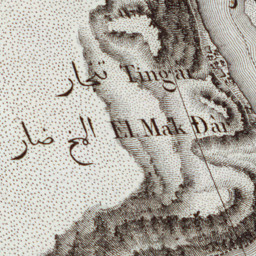 تنجار Tingar
المخ ضار El Mak Dâr